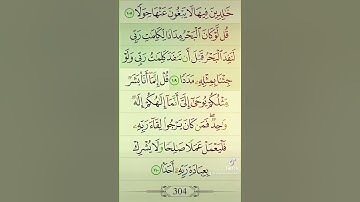 خَٰلِدِينَ فِيهَا لَا يَبْغُونَ عَنْهَا حِوَلًا ١٠٨
قُل لَّوْ كَانَ ٱلْبَحْرُ مِدَادًا لِّكَلِمَٰتِ رَبِّي
لَنَفِدَ ٱلْبَحْرُ قَبْلَ أَن تَنفَدَ كَلِمَٰتُ رَبِّي وَلَوْ
جِئْنَا بِمِثْلِهِۦ مَدَدًا ١٠٩ قُلْ إِنَّمَآ أَنَا۠ بَشَرٌ
مِّثْلُكُمْ يُوحَىٰٓ إِلَيَّ أَنَّمَآ إِلَٰهُكُمْ إِلَٰهٌ
وَٰحِدٌ فَمَن كَانَ يَرْجُوا۟ لِقَآءَ رَبِّهِۦ
فَلْيَعْمَلْ عَمَلًا صَٰلِحًا وَلَا يُشْرِكْ
بِعِبَادَةِ رَبِّهِۦٓ أَحَدًۢا ١١٠
304